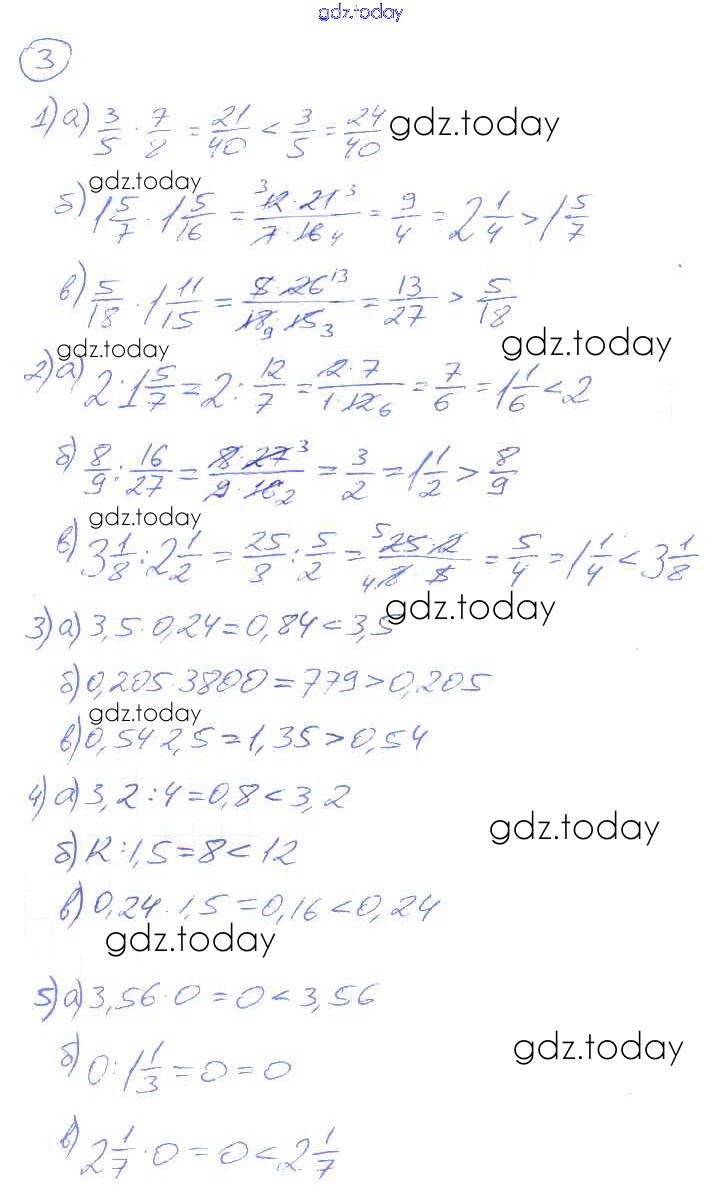 gdz.today
3
1) а) 3/5 · 7/8 = 21/40 < 3/5 = 24/40 gdz.today
gdz.today
б) 1 5/7 · 1 5/16 = 12·21/7·16 = 9/4 = 2 1/4 > 1 5/7
в) 5/18 · 1 11/15 = 5·26/18·15 = 13/27 > 5/18
gdz.today gdz.today
2) а) 2 : 1 5/7 = 2 : 12/7 = 2·7/1·12 = 7/6 = 1 1/6 < 2
б) 8/9 : 16/27 = 8·27/9·16 = 3/2 = 1 1/2 > 8/9
gdz.today
в) 3 1/8 : 2 1/2 = 25/8 : 5/2 = 25·2/8·5 = 5/4 = 1 1/4 < 3 1/8
gdz.today
3) а) 3,5·0,24=0,84<3,5
б) 0,205·3800=779>0,205
gdz.today
в) 0,54·2,5=1,35>0,54
4) а) 3,2:4=0,8<3,2
gdz.today
б) 12:1,5=8<12
в) 0,24·1,5=0,16<0,24
gdz.today
5) а) 3,56·0=0<3,56
gdz.today
б) 0 : 1 1/3 = 0 = 0
в) 2 1/7 · 0 = 0 < 2 1/7